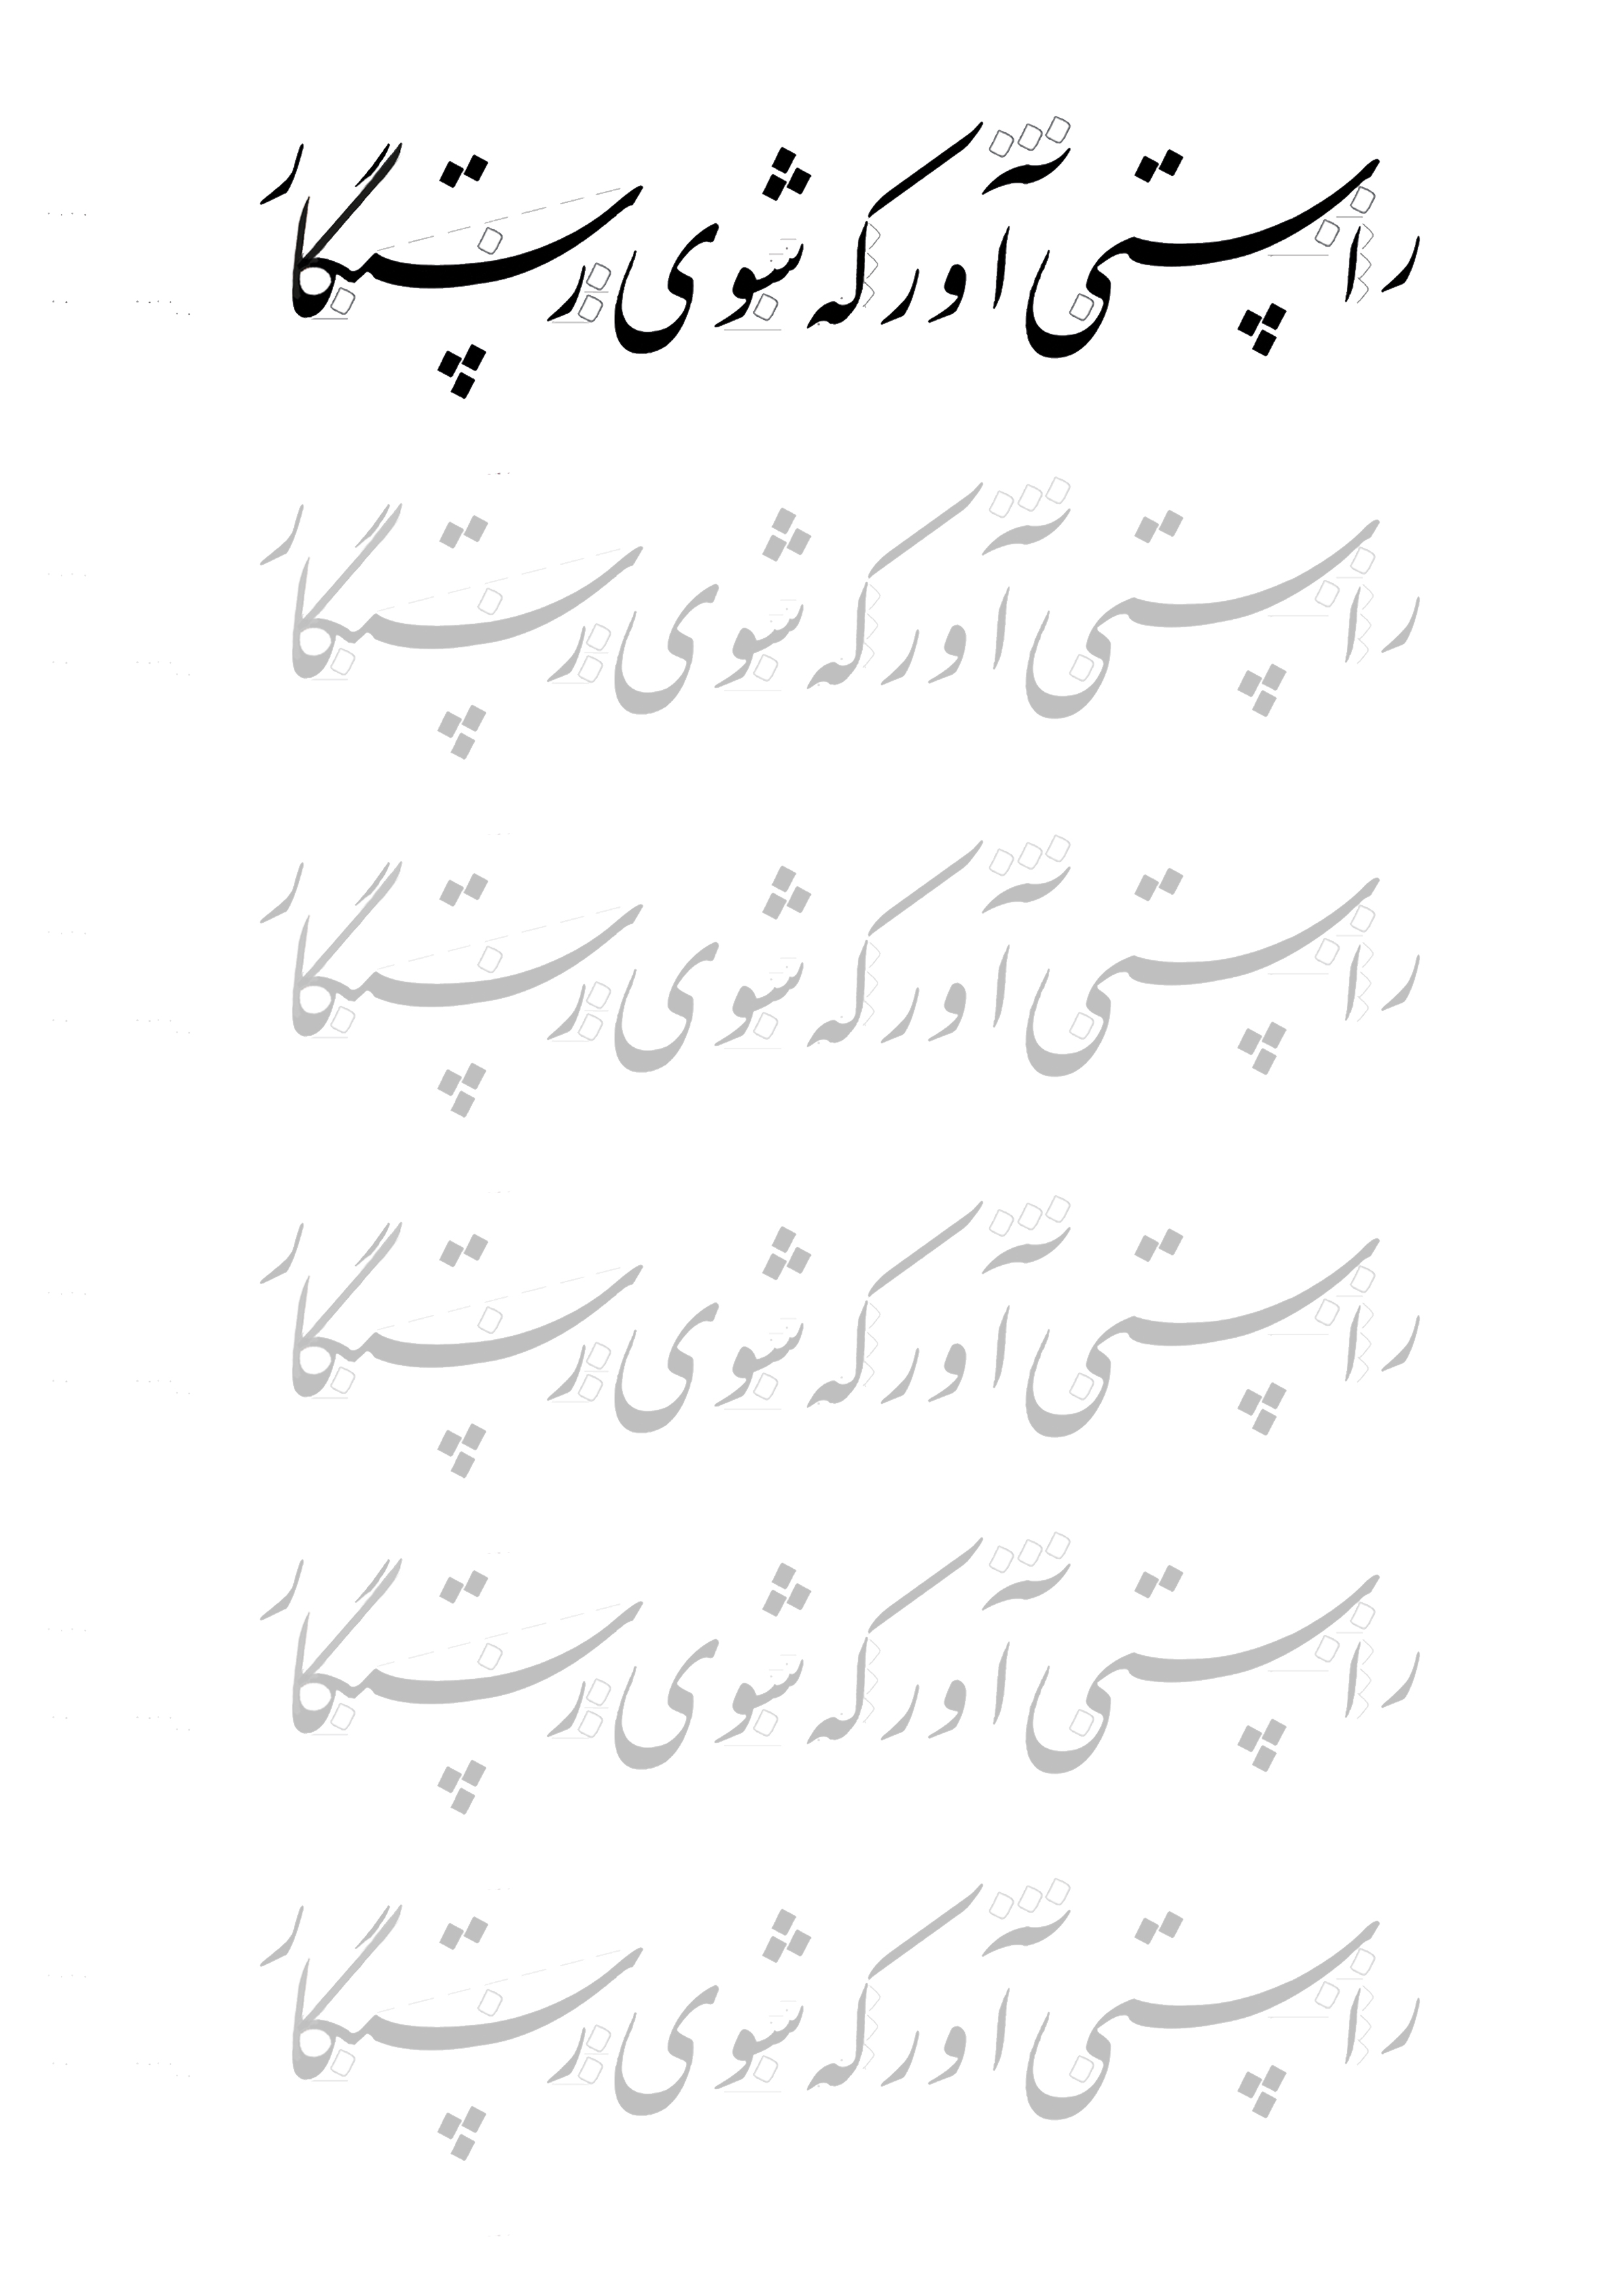 راستی آور که شوی رستگار
راستی آور که شوی رستگار
راستی آور که شوی رستگار
راستی آور که شوی رستگار
راستی آور که شوی رستگار
راستی آور که شوی رستگار